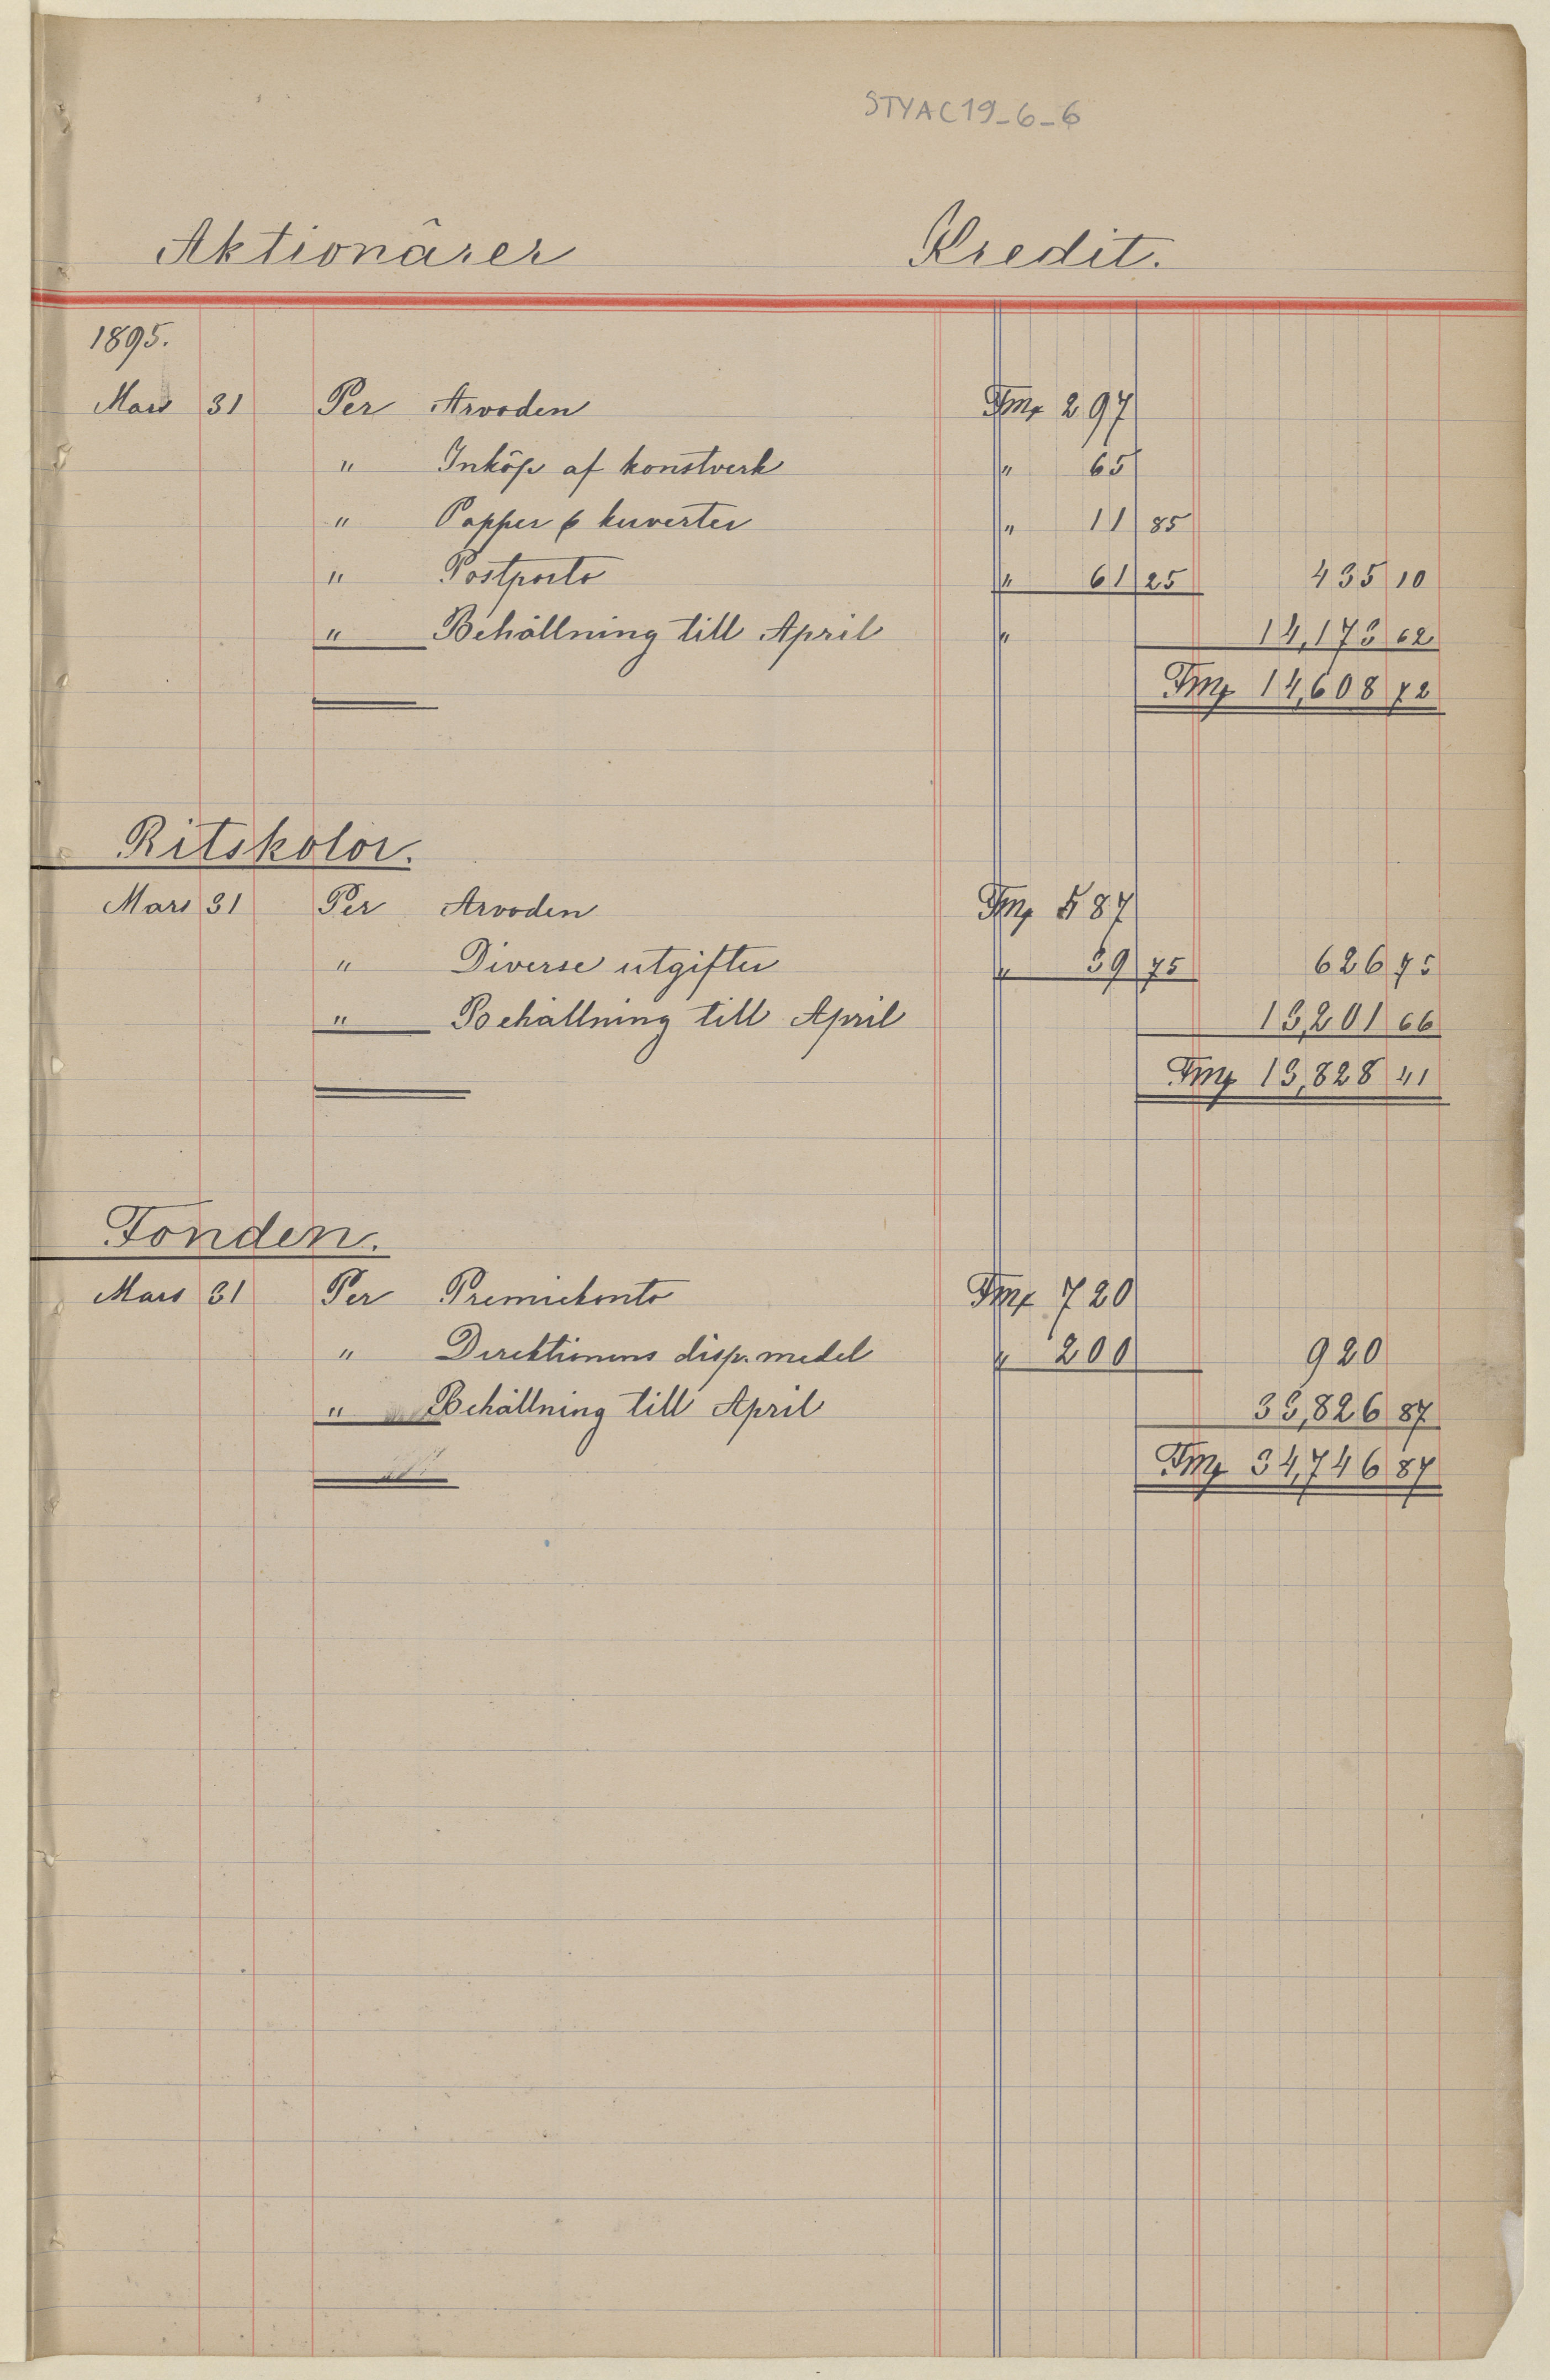 STYAC19_6_6
Aktionärer Kredit.
1895.
Mars 31 Per Arvoden Fmk 297
" Inköp af konstverk " 65
" Papper & kuverter " 11 85
" Postporto " 61 25 435 10
" Behållning till April " 14,173 62
Fmk 14,608 72
Ritskolor.
Mars 31 Per Arvoden Fmk 587
" Diverse utgifter " 39 75 626 75
" Behållning till April 13,201 66
Fmk 13,828 41
Fonden.
Mars 31 Per Premiekonto Fmk 720
" Direktionens disp. medel " 200 920
" Behållning till April 33,826 87
Fmk 34,746 87